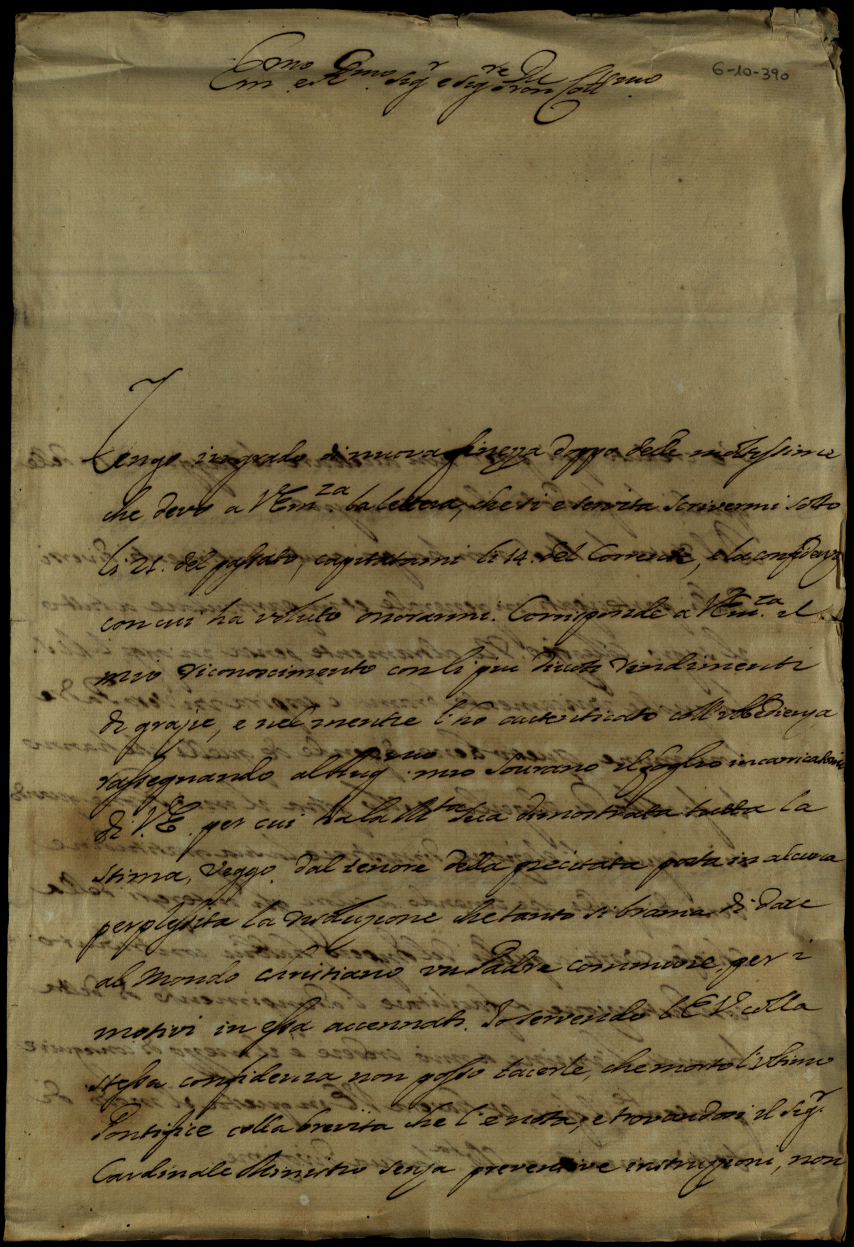 Em.mo e R.mo Sig.r e Sig.re Pron Coll.mo
6-10-390
Tengo in grado di nuova finezza doppo delle moltissime
che devo a V. Em.za la lettera, che si è servita scrivermi sotto
li 21. del passato, capitatami li 14. del Corrente, e la confidenza
con cui ha voluto onorarmi. Corrisponde a V. Em.za il
mio riconoscimento con li più divoti rendimenti
di grazie, e nel mentre l'hò autenticato coll'obbedienza
rassegnando all'Aug.mo mio Sovrano il foglio
di V. E. per cui ha la M.tà Sua dimostrata tutta la
stima, veggo dal tenore della precitata posta in alcuna
perplessità la risoluzione che tanto si brama di dare
al Mondo cristiano un Padre commune, per i
motivi in essa accennati. Io servendo l'E. V. colla
stessa confidenza non posso tacerle, che morto l'ultimo
Pontifice colla brevità che l'è nota, e trovandosi il Sig.r
Cardinale Ministro senza preventive instruzioni, non